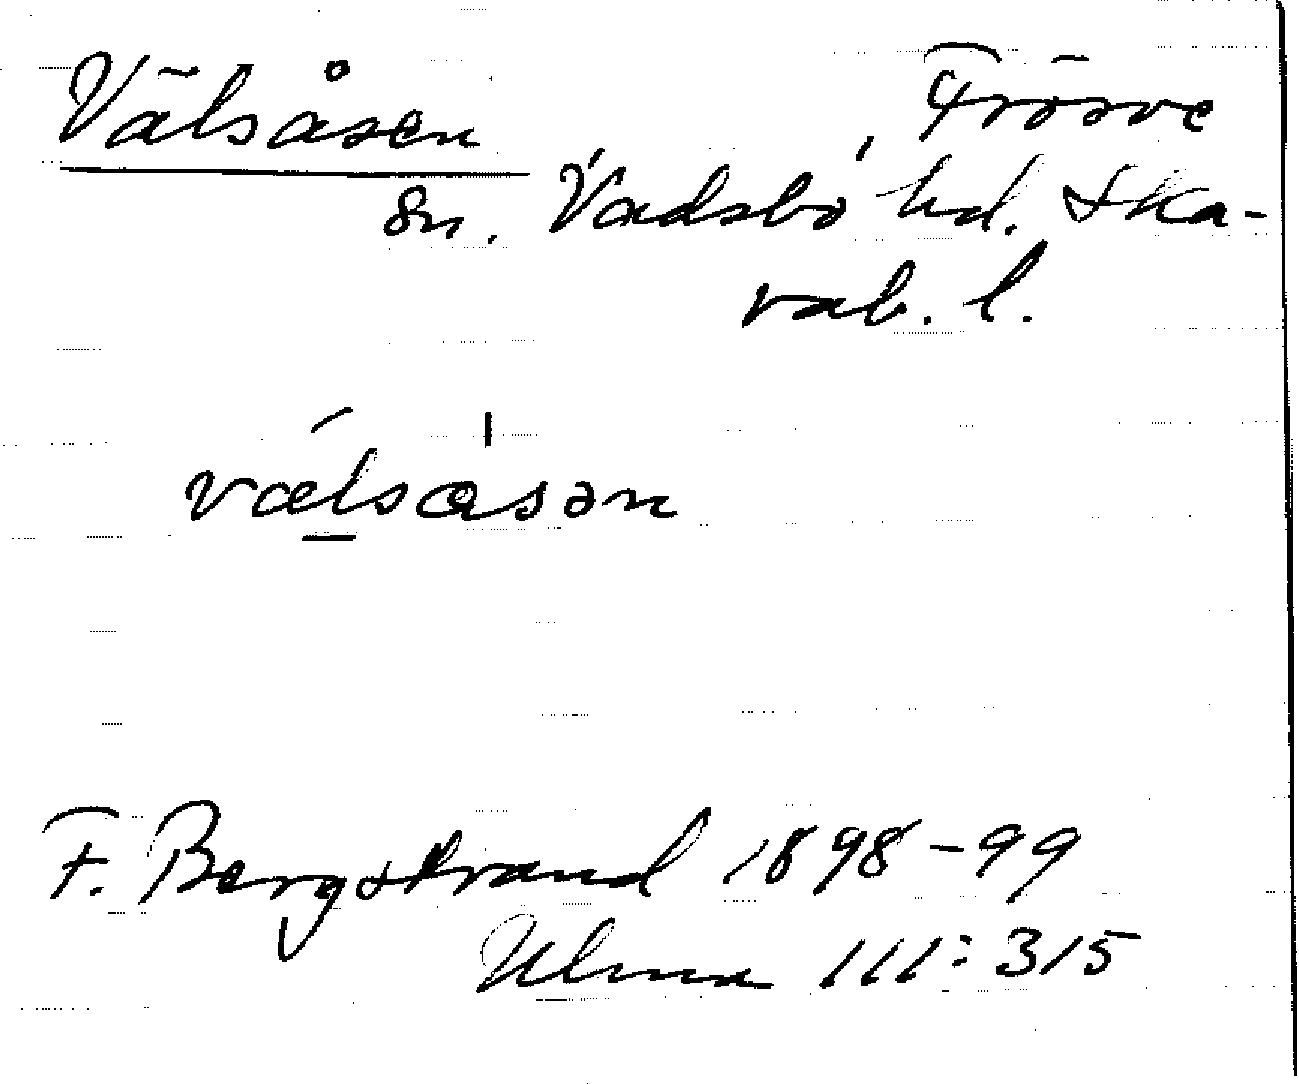 Välsåsen, Frösve
sn. Vadsbo hd. Ska-
rab. l.
vælsåsən
F. Bergstrand 1898-99
Ulma 111:315